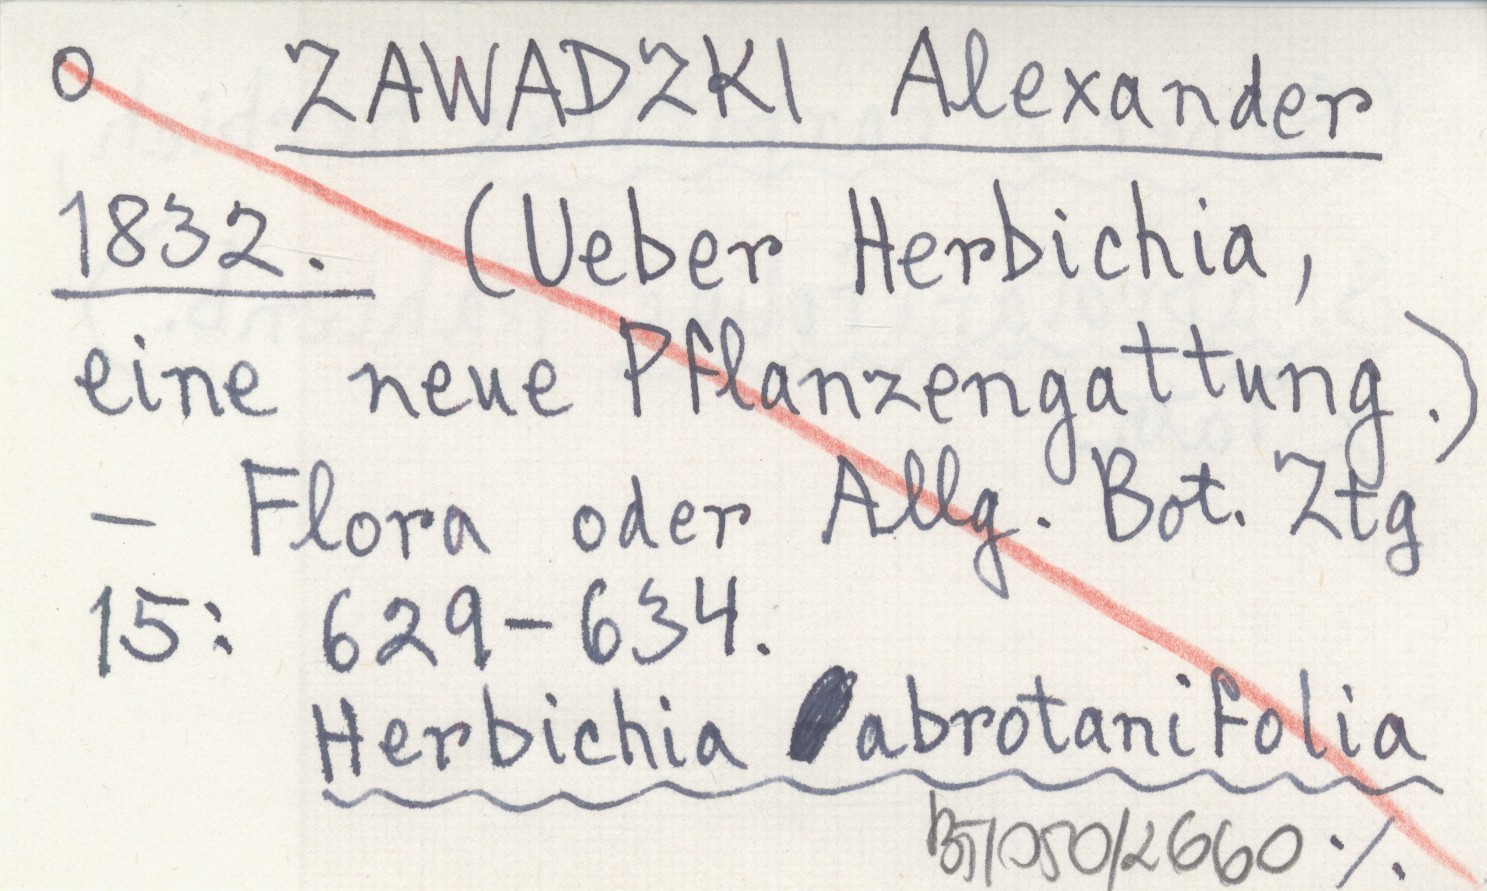 O ZAWADZKI Alexander
1832. (Ueber Herbichia,
eine neue Pflanzengattung.)
— Flora oder Allg. Bot. Ztg
15: 629–634.
Herbichia abrotanifolia
./.